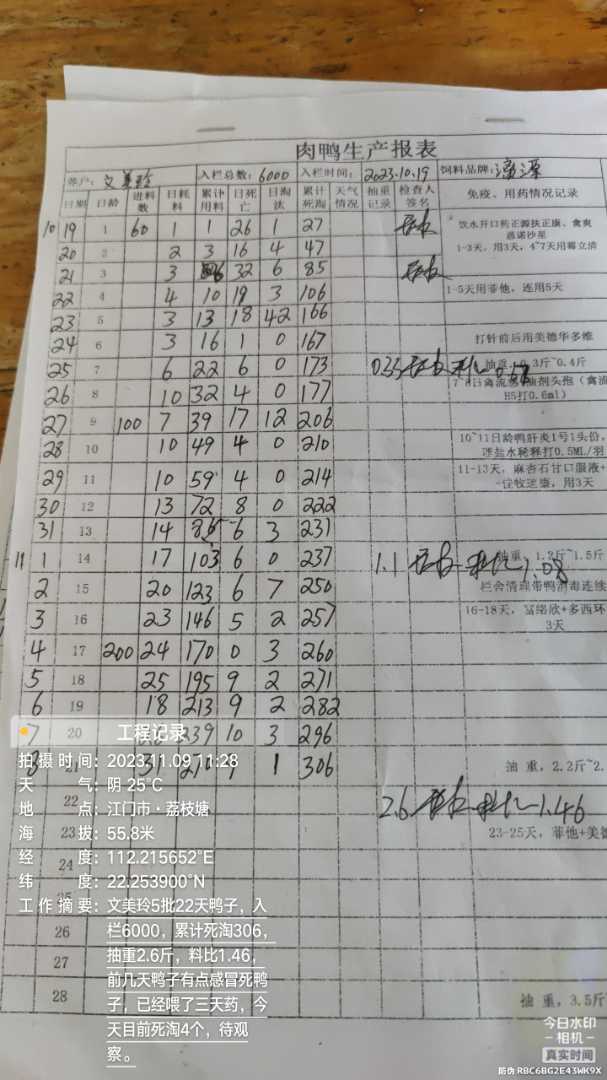 肉鸭生产报表
养户: 文美玲 入栏总数: 6000 入栏时间: 2023.10.19 饲料品牌:
日期 日龄 进料数 日耗料 累计用料 日死亡 日淘汰 累计死淘 天气情况 抽重记录 检查人签名 免疫、用药情况记录
10 19 1 60 1 1 26 1 27
饮水开口药正源扶正康、禽爽
1-3天, 用3天, 4~7天用霉立清
20 2 2 3 16 4 47
21 3 3 6 32 6 85
22 4 4 10 19 3 106
1-5天用菲他, 连用5天
23 5 3 13 18 42 166
24 6 3 16 1 0 167
打针前后用美德华多维
25 7 6 22 6 0 173 0.35 0.68
抽重: 0.3斤~0.4斤
26 8 10 32 4 0 177
H5打0.6ml)
27 9 100 7 39 17 12 206
28 10 10 49 4 0 210
10~11日龄鸭肝炎1号1头份,
冰盐水稀释打0.5ML/羽
29 11 10 59 4 0 214
11-13天, 麻杏石甘口服液+
用3天
30 12 13 72 8 0 222
31 13 14 86 6 3 231
11 1 14 17 103 6 0 237 1.1 1.08
抽重: 1.2斤~1.5斤
2 15 20 123 6 7 250
栏舍清理带鸭消毒连续
3 16 23 146 5 2 257
16-18天, +多西环
3天
4 17 200 24 170 0 3 260
5 18 25 195 9 2 271
6 19 18 213 9 2 282
7 20 239 10 3 296
8 21 31 1 306
抽重, 2.2斤~2.
22 2.6 1.46
23
23-25天, 菲他+美德
24
26
27
28
抽重, 3.5斤
工程记录
拍摄时间: 2023.11.09 11:28
天气: 阴 25℃
地点: 江门市·荔枝塘
海拔: 55.8米
经度: 112.215652°E
纬度: 22.253900°N
工作摘要: 文美玲5批22天鸭子，入
栏6000，累计死淘306，
抽重2.6斤，料比1.46，
前几天鸭子有点感冒死鸭
子，已经喂了三天药，今
天目前死淘4个，待观
察。
今日水印
相机
真实时间
防伪 RBC6BG2E43WK9X